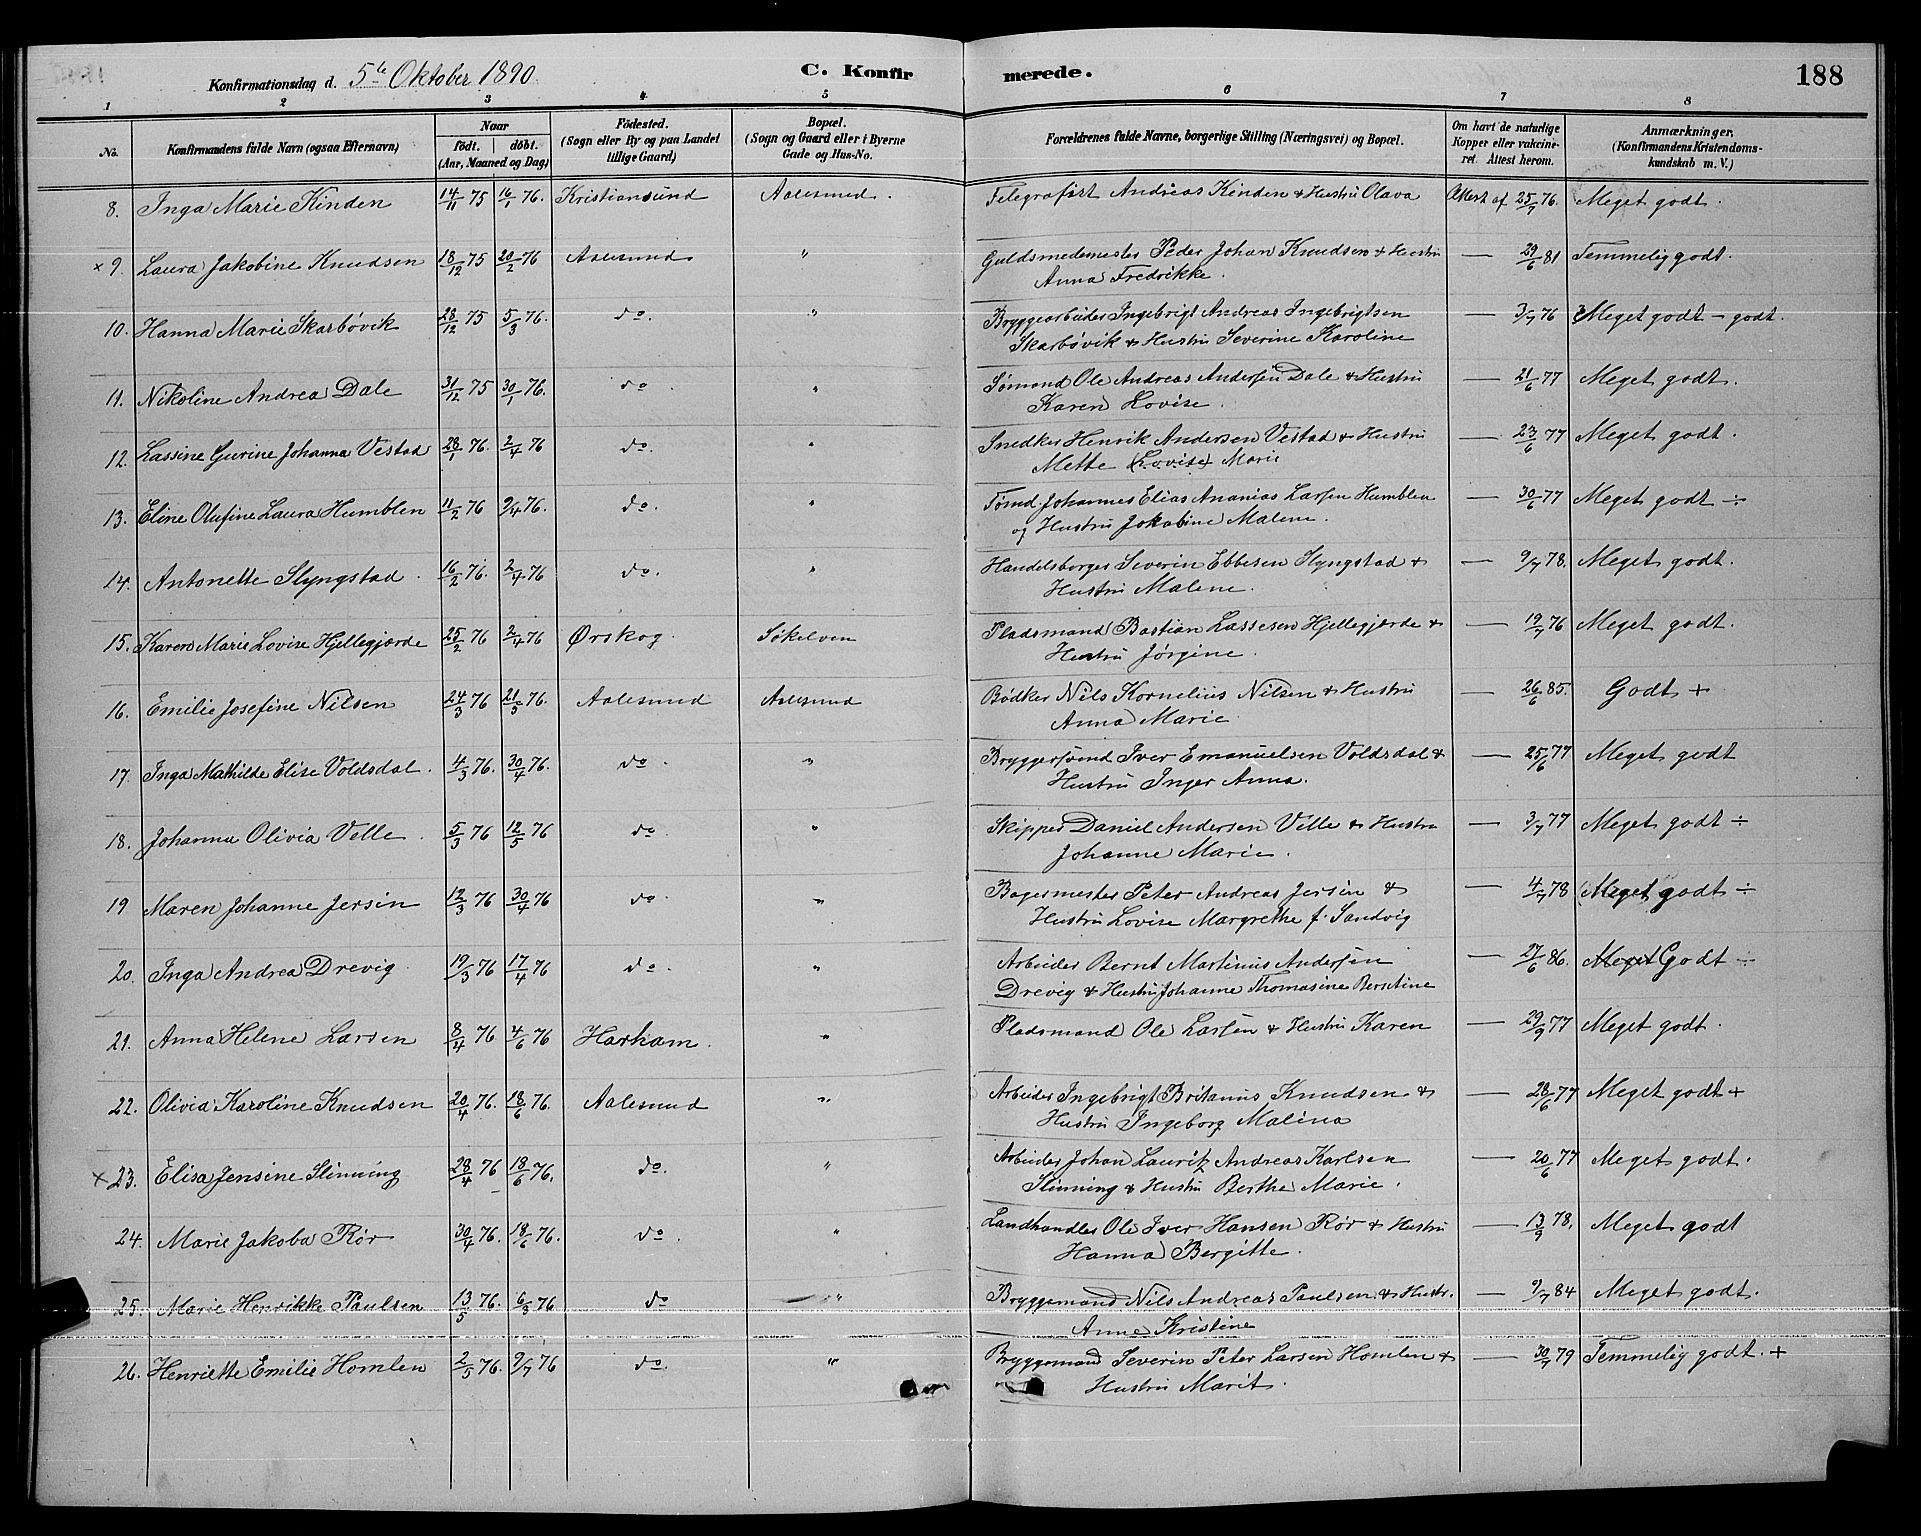 Konfirmationsdag d. 5te Oktober 1890. C. Konfirmerede. 188
1 2 3 4 5 6 7 8
No. Konfirmandens fulde Navn (ogsaa Efternavn) Naar födt. döbt. (Aar, Maaned og Dag) Födested. (Sogn eller By og paa Landet lillige Gaard) Bopæl. (Sogn og Gaard eller i Byerne Gade og Hus-No. Forældrenes fulde Navne, borgerlige Stilling (Næringsvei) og Bopæl. Om havt de naturlige Kopper eller vakcineret. Attest herom. Anmærkninger. (Konfirmandens Kristendomskundskab m. V.)
8. Inga Marie Kinden 14/11 75 16/1 76. Kristiansund Aalesund. Telegrafist Andreas Kinden & Hustru Olava Attest af 25/7 76. Meget godt.
× 9. Laura Jakobine Knudsen 18/12 75 20/2 76 Aalesund " Guldsmedemester Peder Johan Knudsen & Hustru — 29/6 81 Temmelig godt.
Anna Fredrikke.
10. Hanna Marie Skarbövik 28/12 75 5/3 76. do. " Bryggearbeider Ingebrigt Andreas Ingebrigtsen — 3/7 76 Meget godt - godt.
Skarbövik & Hustru Severine Karoline
11. Nikoline Andrea Dale 31/12 75 30/1 76. do. " Sømand Ole Andreas Andersen Dale & Hustru — 21/6 77 Meget godt.
Karen Lovise.
12. Lassine Gurine Johanna Vestad 28/1 76. 2/4 76 do. " Snedker Henrik Andersen Vestad & Hustru — 23/6 77 Meget godt.
Mette (Lovise) Marie
13. Eline Olufine Laura Humblen 11/2 76 9/4 76. do. " Tømd. Johannes Elias Ananias Larsen Humblen — 30/6 77 Meget godt ÷
og Hustru Jakobine Malene.
14. Antonette Slyngstad. 16/2 76. 2/4 76 do. " Handelsborger Severin Ebbesen Slyngstad & — 9/7 78. Meget godt.
Hustru Malene.
15. Karen Marie Lovise Hjellegjærde 25/2 76 2/4 76 Ørskog. Søkelven Pladsmand Bastian Lassesen Hjellegjærde & — 19/7 76 Meget godt.
Hustru Jørgine.
16. Emilie Josefine Nilsen 24/3 76 21/5 76. Aalesund Aalesund Bødker Nils Kornelius Nilsen & Hustru — 26/6 85. Godt +
Anna Marie.
17. Inga Mathilde Elise Voldsdal. 4/3 76. 30/4 76. do. " Bryggersvend Iver Emanuelsen Voldsdal & — 25/6 77 Meget godt
Hustru Inger Anna.
18. Johanna Olivia Velle. 5/3 76 12/5 76 do " Skipper Daniel Andersen Velle & Hustru — 3/7 77 Meget godt ÷
Johanne Marie.
19 Maren Johanne Jersin 12/3 76 30/4 76 do. " Bagermester Peter Andreas Jersin & — 4/7 78 Meget godt ÷
Hustru Lovise Margrethe f. Sandvig
20. Inga Andrea Drevig. 19/3 76 17/4 76 do. " Arbeider Bernt Martinus Andersen — 27/6 86. Meget Godt ÷
Drevig & Hustru Johanne Thomasine Berntine
21. Anna Helene Larsen 8/4 76 4/6 76 Harham. " Pladsmand Ole Larsen & Hustru Karen — 29/9 77 Meget godt.
22. Olivia Karoline Knudsen 20/4 76. 18/6 76. Aalesund " Arbeider Ingebrigt Britanus Knudsen & — 28/6 77 Meget godt +
Hustru Ingeborg Malina
× 23. Elisa Jensine Slinning 28/4 76 18/6 76. do. " Arbeider Johan Laurik Andreas Karlsen — 20/6 77 Meget godt.
Slinning & Hustru Berthe Marie.
24. Marie Jakoba Rör 30/4 76. 18/6 76. do. " Landhandler Ole Iver Hansen Rör & Hustru — 13/9 78. Meget godt
Hanna Bergitte.
25. Marie Henrikke Paulsen 13/5 76. 6/3 76 do " Bryggemand Nils Andreas Paulsen & Hustr. — 9/7 84 Meget godt.
Anne Kristine
26. Henriette Emilie Homlen 2/5 76. 9/7 76 do. " Bryggemand Severin Peter Larsen Homlen & — 30/7 79 Temmelig godt. +
Hustru Marit.